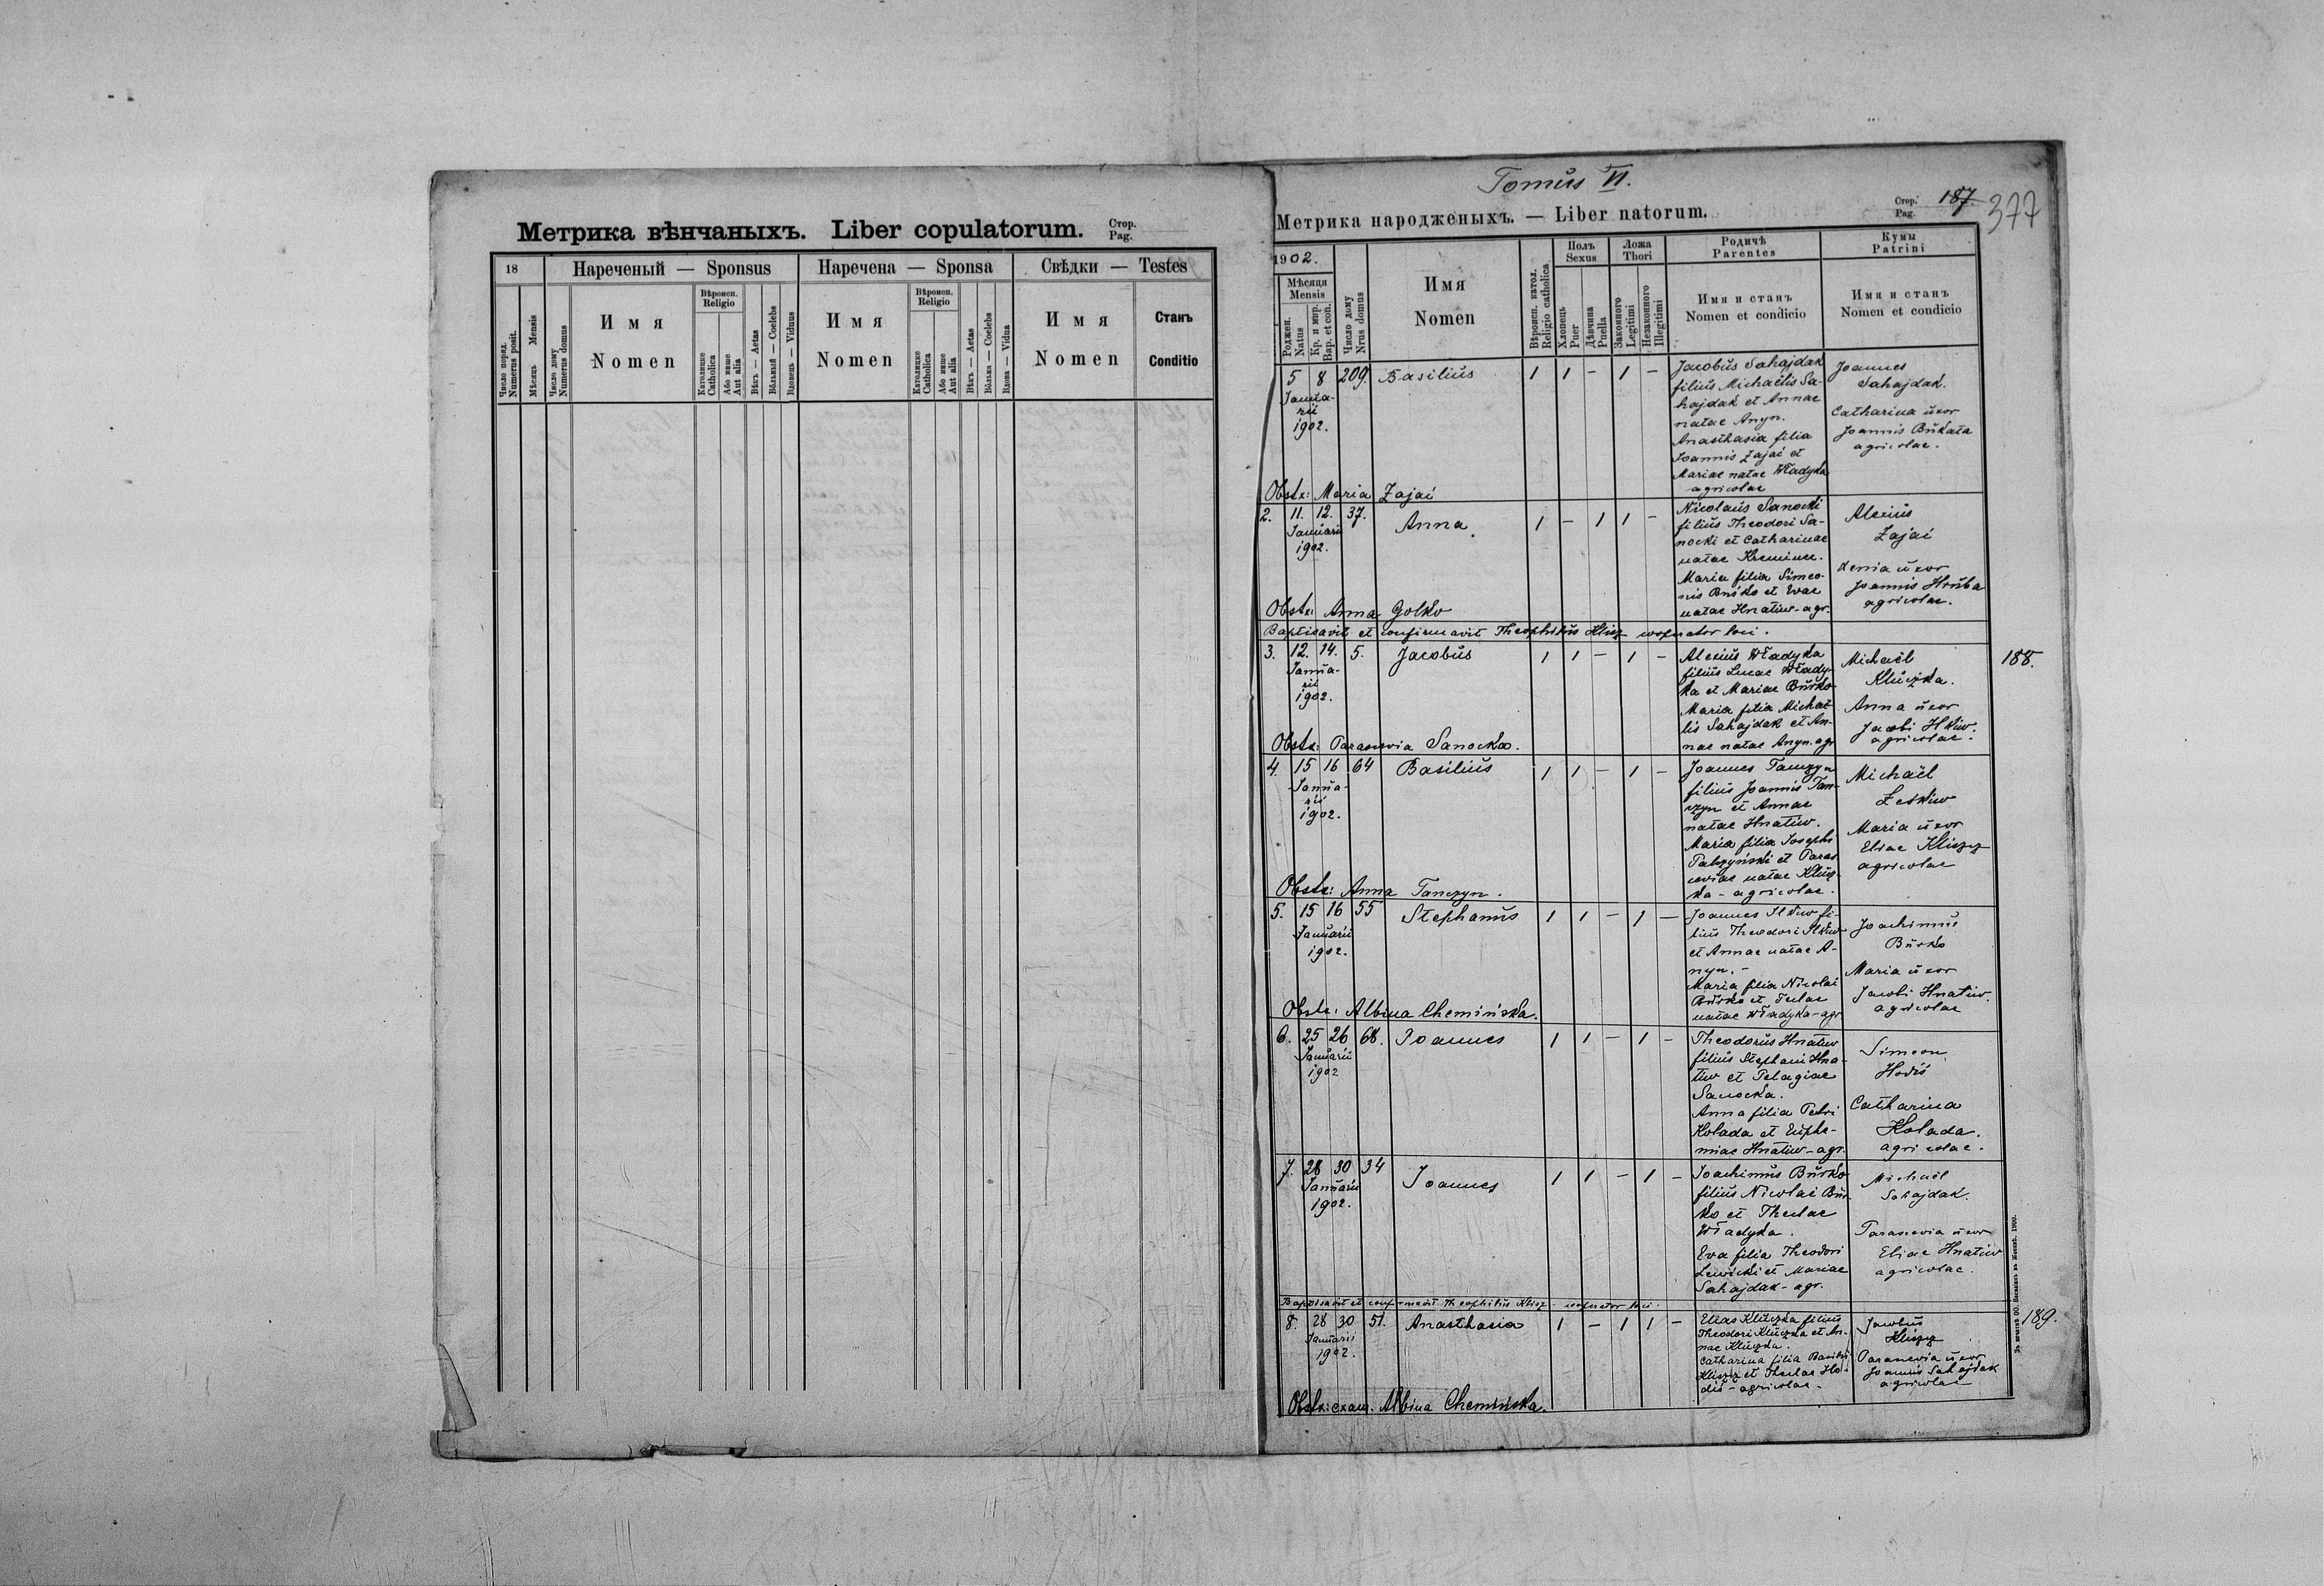 Метрика вѣнчаныхъ. Liber copulatorum. Стор. Pag.
18
Нареченый — Sponsus
Наречена — Sponsa
Свѣдки — Testes
Число поряд.
Numerus posit.
Мѣсяць Mensis
Число дому
Numerus domus
Имя
Nomen
Вѣроисп.
Religio
Католицке
Catholica
Або инше
Aut alia
Вѣкъ — Aetas
Вôльный — Coelebs
Вдовець — Viduus
Имя
Nomen
Вѣроисп.
Religio
Католицке
Catholica
Або инше
Aut alia
Вѣкъ — Aetas
Вôльна — Coelebs
Вдова — Vidua
Имя
Nomen
Станъ
Conditio
Tomŭs VI.
Метрика народженыхъ. — Liber natorum.
Стор.
Pag.
187
377
1902.
Мѣсяця
Mensis
Роджен.
Natus
Кр. и мир.
Bap. et con.
Число дому
Nrus domus
Имя
Nomen
Вѣроисп. катол.
Religio catholica
Полъ
Sexus
Хлопець
Puer
Дѣвчина
Puella
Ложа
Thori
Законного
Legitimi
Незаконного
Illegitimi
Родичѣ
Parentes
Имя и станъ
Nomen et condicio
Кумы
Patrini
Имя и станъ
Nomen et condicio
5 8 209. Basiliŭs 1 1 - 1 -
Janŭa-
rii
1902.
Jacobŭs Sahajdak
filiŭs Michaëlis Sa-
hajdak et Annae
natae Anyn.
Anasthasia filia
Joannis Zajać et
Mariae natae Władyka
agricolae
Joannes
Sahajdak.
Catharina ŭxor
Joannis Bŭkata
agricolae.
Obstx: Maria Zajać
2. 11. 12. 37. Anna 1 - 1 1 -
Janŭarii
1902.
Nicolaŭs Sanocki
filiŭs Theodori Sa-
nocki et Catharinae
natae Kreminec.
Maria filia Simeo-
nis Bŭrko et Evae
natae Hnatiw - agr.
Alexiŭs
Zajać
Xenia ŭxor
Joannis Hrŭba
agricolae.
Obstx: Anna Golko
Baptisavit et confirmavit Theophilŭs Klisz cooperator loci.
3. 12. 14. 5. Jacobŭs 1 1 - 1 -
Janŭa-
rii
1902.
Alexiŭs Władyka
filiŭs Lucae Włady-
ka et Mariae Bŭrko
Maria filia Michaë-
lis Sahajdak et An-
nae natae Anyn. agr
Michaël
Klŭczka.
Anna ŭxor
Jacobi Ilkiw.
agricolae.
188.
Obstx: Parascevia Sanocka.
4. 15 16 64 Basiliŭs 1 1 - 1 -
Janŭa-
rii
1902.
Joannes Tanczyn
filiŭs Joannis Tan-
czyn et Annae
natae Hnatiw.
Maria filia Josephi
Pabzyński et Paras
ceviae natae Klŭcz-
ka - agricolae.
Michaël
Zelkiw
Maria ŭxor
Eliae Kliszcz
agricolae
Obstx: Anna Tanczyn.
5. 15 16 55 Stephanŭs 1 1 - 1 -
Janŭarii
1902.
Joannes Ilkiw fi-
liŭs Theodori Ilkiw
et Annae natae A-
nyn. -
Maria filia Nicolai
Bŭrko et Teclae
natae Władyka - agr
Joachimŭs
Bŭrko
Maria ŭxor
Jacobi Hnatiw.
agricolae
Obstx: Albina Chemińska.
6. 25 26 68. Joannes 1 1 - 1 -
Janŭarii
1902
Theodorŭs Hnatiw
filiŭs Stephani Hna-
tiw et Pelagiae
Sanocka.
Anna filia Petri
Kolada et Eŭphe-
miae Hnatiw - agr.
Simeon
Hodiś
Catharina
Kolada.
agricolae.
7. 28 30 34 Joannes 1 1 - 1 -
Janŭarii
1902.
Joachimŭs Bŭrko
filiŭs Nicolai Bŭr-
ko et Theclae
Władyka.
Eva filia Theodori
Lewicki et Mariae
Sahajdak - agr.
Michaël
Sahajdak.
Parascevia ŭxor
Eliae Hnatiw
agricolae.
Baptisavit et confirmavit Theophilŭs Klisz - cooperator loci.
8. 28 30 51. Anasthasia 1 - 1 1 -
Janŭarii
1902.
Elias Klŭczka filiŭs
Theodori Klŭczka et An-
nae Klŭczka.
Catharina filia Basilii
Kliszcz et Theclae Ho-
diś - agricolae -
Jacobŭs
Kliszcz
Parascevia ŭxor
Joannis Sahajdak
agricolae
189.
Obstx: exam. Albina Chemińska.